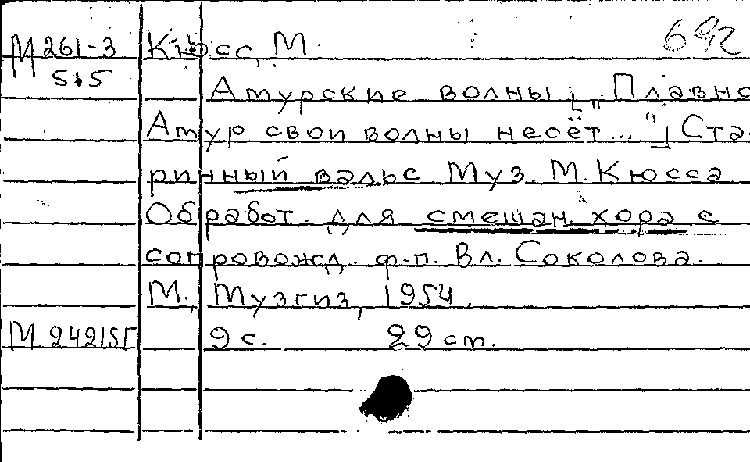 692
М 261-3 Кюсс, М.
515
Амурские волны [„Плавно
Амур свои волны несёт..."] Ста-
ринный вальс Муз. М. Кюсса
Обработ. для смешан. хора с
сопровожд. ф-п. Вл. Соколова.
М., Музгиз, 1954.
М 24215Г 9 с. 29 см.